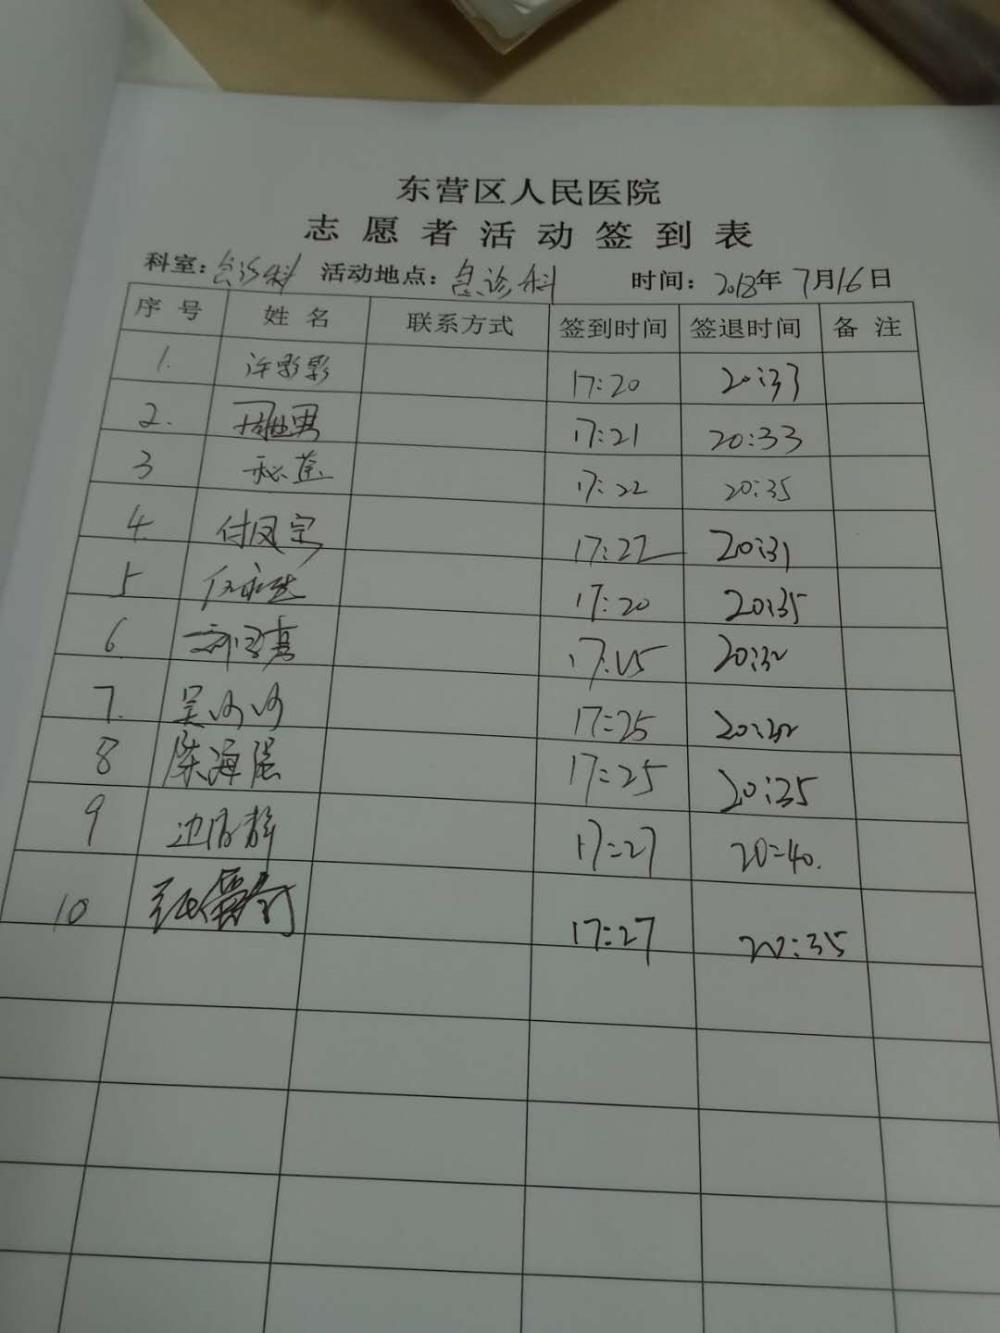 东营区人民医院
志愿者活动签到表
科室：急诊科 活动地点：急诊科 时间：2018年7月16日
序号 姓名 联系方式 签到时间 签退时间 备注
1. 许影影 17:20 20:33
2. 17:21 20:33
3 17:22 20:35
4. 付凤宝 17:22 20:31
5 17:20 20:35
6 20:32
7. 17:25
8 陈海 17:25 20:35
9 静 17:27 20:40.
10 17:27 20:35